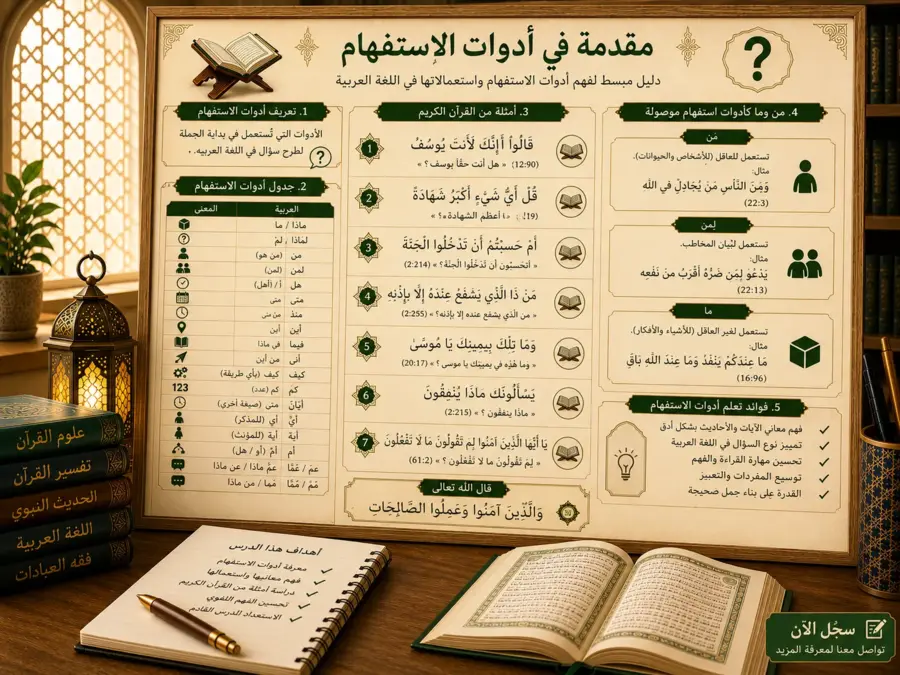 مقدمة في أدوات الإستفهام
دليل مبسط لفهم أدوات الاستفهام واستعمالاتها في اللغة العربية
?
1. تعريف أدوات الاستفهام
الأدوات التي تُستعمل في بداية الجملة
لطرح سؤال في اللغة العربيه.
?
2. جدول أدوات الاستفهام
العربية المعنى
ماذا / ما
لماذا / لمَ
من (من هو)
لمن (لمن)
هل أ / (أهل)
متى متى
منذ من متى
أين أين
فيما في ماذا
أنى من أين
كيف كيف (بأي طريقة)
كمَ كم (عدد) 123
أيّانَ متى (صيغة أخرى)
أيُّ أي (للمذكر)
أية أية (للمؤنث)
أم أمْ (أو / هل)
عمَ / عَمَّا عمُ ماذا / عن ماذا
مَمُ / مَمَّا مَما / من ماذا
3. أمثلة من القرآن الكريم
1
قَالُوا أَإِنَّكَ لَأَنتَ يُوسُفُ
« هل أنت حقًا يوسف ؟ » (12:90)
2
قُل أَيُّ شَيْءٍ أَكْبَرُ شَهَادَةً
أعظم الشهادة
3
أَمْ حَسِبْتُمْ أَن تَدْخُلُوا الْجَنَّةَ
« أتحسبون أن تَدْخُلُوا الجنة؟ » (2:214)
4
مَن ذَا الَّذِي يَشْفَعُ عِنْدَهُ إِلَّا بِإِذْنِهِ
« من الذي يشفع عنده إلا بإذنه؟ » (2:255)
5
وَمَا تِلْكَ بِيَمِينِكَ يَا مُوسَىٰ
« وما هذه في يمينك يا موسى ؟ » (20:17)
6
يَسْأَلُونَكَ مَاذَا يُنْفِقُونَ
« ماذا ينفقون ؟ » (2:215)
7
يَا أَيُّهَا الَّذِينَ آمَنُوا لِمَ تَقُولُونَ مَا لَا تَفْعَلُونَ
« لِمَ تَقُولُونَ ما لا تَفْعَلُونَ ؟ » (61:2)
قال الله تعالى
وَالَّذِينَ آمَنُوا وَعَمِلُوا الصَّالِحَاتِ
4. من وما كأدوات استفهام موصولة
مَن
تستعمل للعاقل (للأشخاص والحيوانات).
مثال:
وَمِنَ النَّاسِ مَن يُجَادِلُ في الله
(22:3)
لِمن
تستعمل لبُيان المخاطب.
مثال:
يَدْعُو لَمِن ضَرُّهُ أَقْرَبُ من نَفْعه
(22:13)
ما
تستعمل لغير العاقل (للأشياء والأفكار).
مثال:
مَا عِندَكُمْ يَنْفَدُ وَمَا عِندَ اللَّهِ بَاقٍ
(16:96)
5. فوائد تعلم أدوات الاستفهام
فهم معاني الآيات والأحاديث بشكل أدق
تمييز نوع السؤال في اللغة العربية
تحسين مهارة القراءة والفهم
توسيع المفردات والتعبير
القدرة على بناء جمل صحيحة
علوم القرآن
تفسير القرآن
الحديث النبوي
اللغة العربية
فقه العبادات
أهداف هذا الدرس
معرفة أدوات الاستفهام
فهم معانيها واستعمالها
دراسة أمثلة من القرآن الكريم
تحسين الفهم اللغوي
الاستعداد الدرس القادم
سجُل الآن
تواصل معنا لمعرفة المزيد